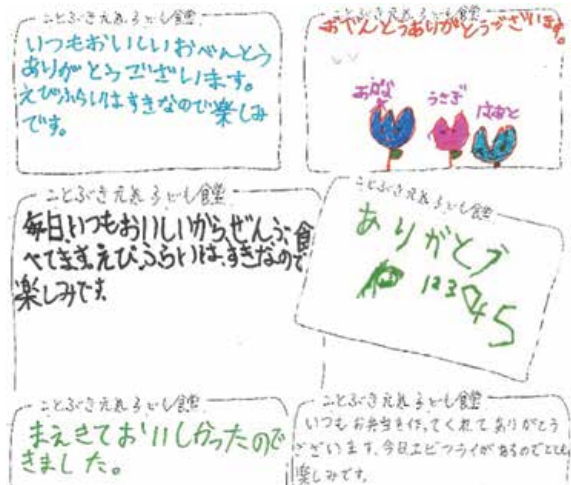 ことぶきえれ子ども食堂
いつもおいしいおべんとう
ありがとうございます。
えびふらいはすきなので楽しみ
です。
ことぶきえれ子ども食堂
おべんとうありがとうございます。
おはな
うさぎ
はあと
ことぶきえれ子ども食堂
毎日いつもおいしいから、ぜんぶ食
べてます。えびふらいは、すきなので
楽しみです。
ことぶきえれ子ども食堂
ありがとう
123
45
ことぶきえれ子ども食堂
まえきておいしかったので
きました。
ことぶきえれ子ども食堂
いつもお弁当を作ってくれてありがとう
ございます。今日エビフライがあるのでとても
楽しみです。